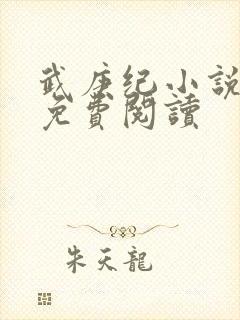 武庚纪小説
免費閱讀
朱天龍